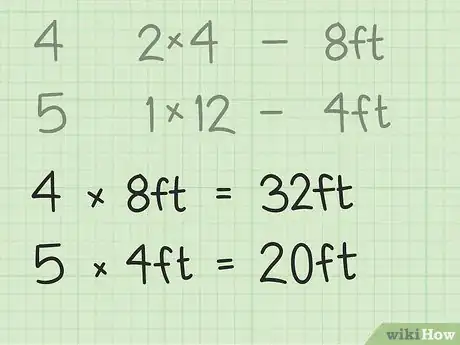 4 2×4 – 8ft
5 1×12 – 4ft
4 × 8ft = 32ft
5 × 4ft = 20ft
wikiHow